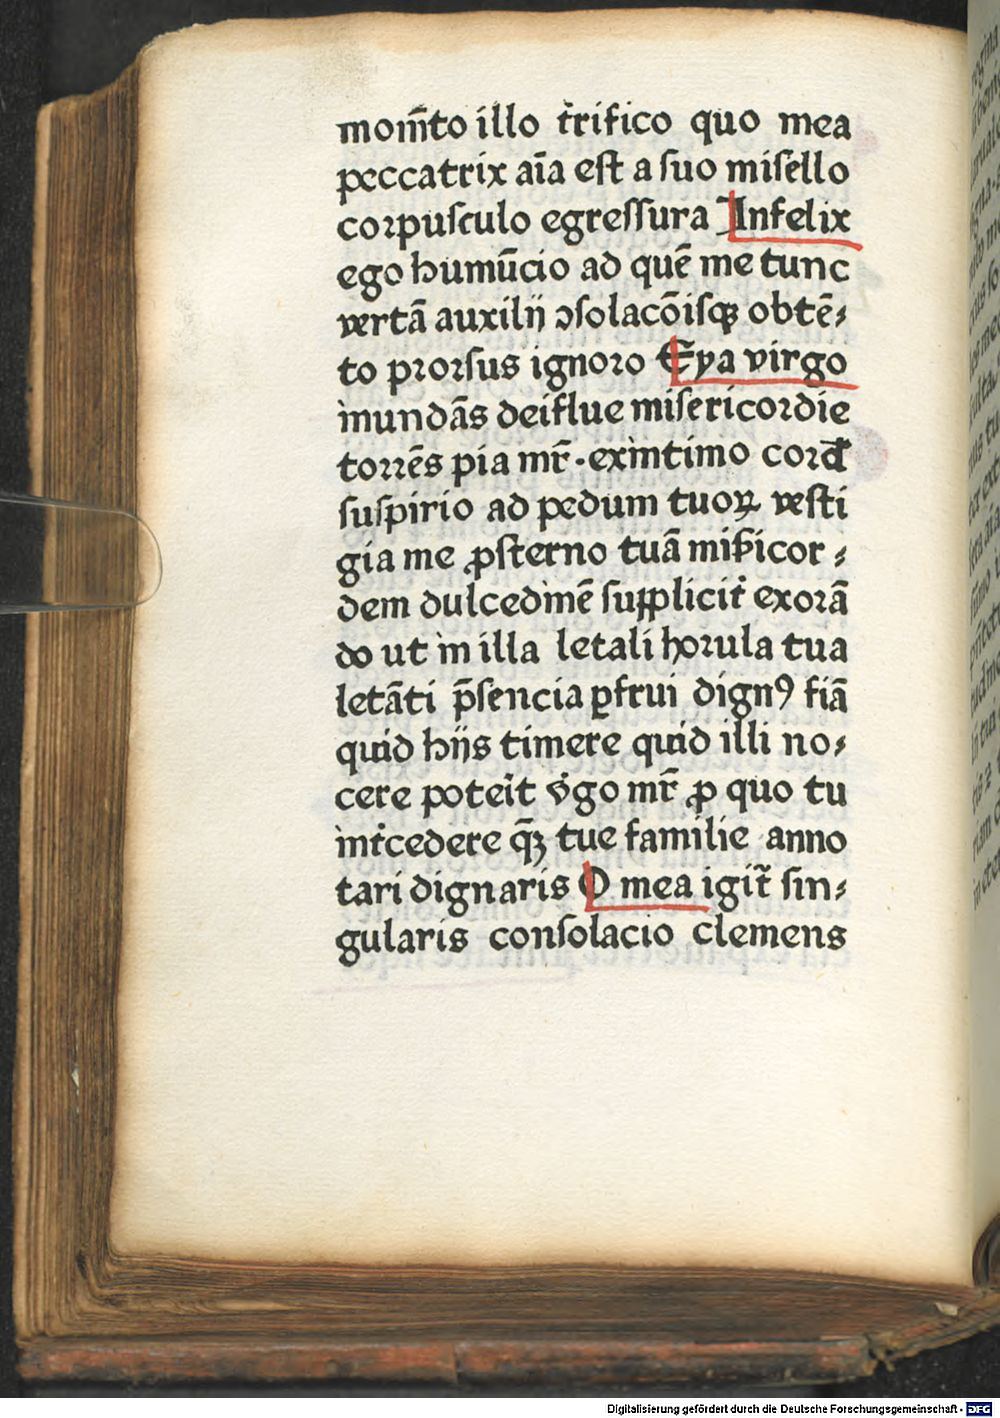 mom̄to illo t̄rifico quo mea
peccatrix aīa est a suo misello
corpusculo egressura Infelix
ego humūcio ad quē me tunc
vertā auxilij ꝯsolacōisqꝫ obtē⸗
to prorsus ignoro Eya virgo
mundās deiflue misericordie
torrēs pia mr̄ · ex intimo cord
suspirio ad pedum tuoꝝ vesti
gia me ꝓsterno tuā mis̄icor⸗
dem dulcedinē supplicit̄ exorā
do ut in illa letali horula tua
letāti p̄sencia ꝑfrui dignꝰ fiā
quid hijs timere quid illi no⸗
cere poteit v̄go mr̄ ꝓ quo tu
int̄cedere q̄ꝫ tue familie anno
tari dignaris O mea igit̄ sin⸗
gularis consolacio clemens
Digitalisierung gefördert durch die Deutsche Forschungsgemeinschaft - DFG